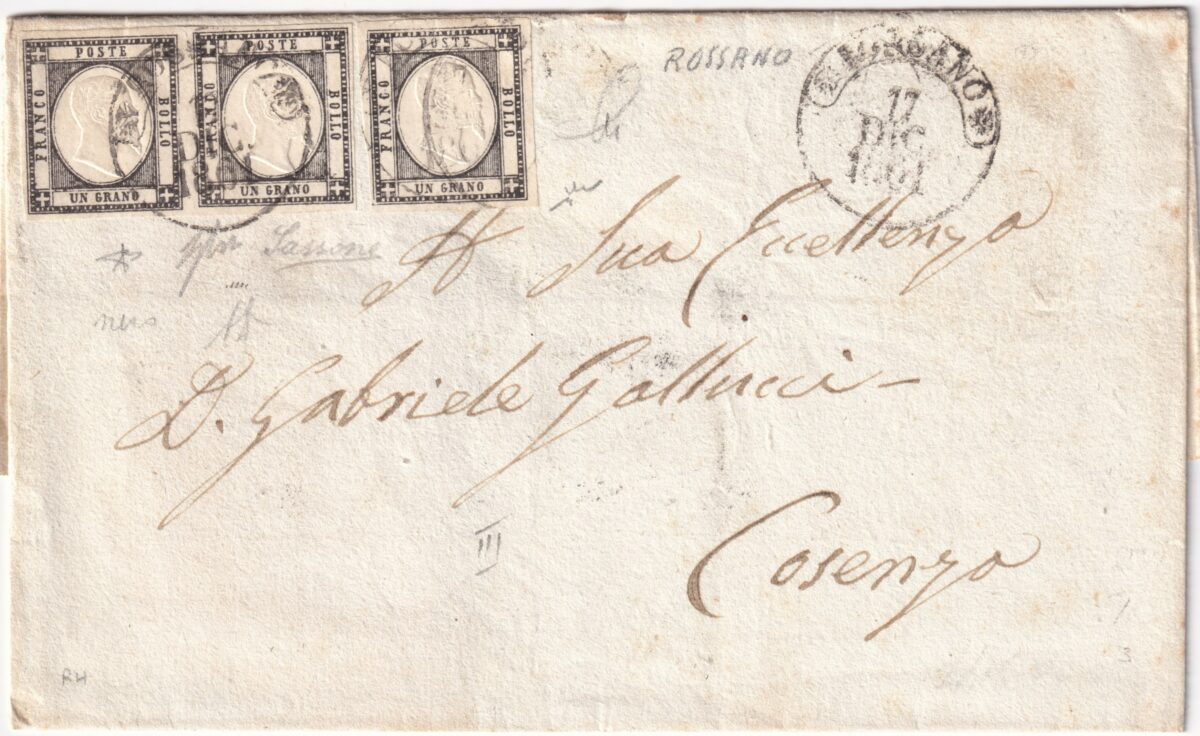 POSTE
FRANCO
BOLLO
UN GRANO
POSTE
FRANCO
BOLLO
UN GRANO
POSTE
FRANCO
BOLLO
UN GRANO
ROSSANO
ROSSANO
17
DIC
1861
Sassone
A Sua Eccellenza
D. Gabriele Gallucci
Cosenza
III
RH
3